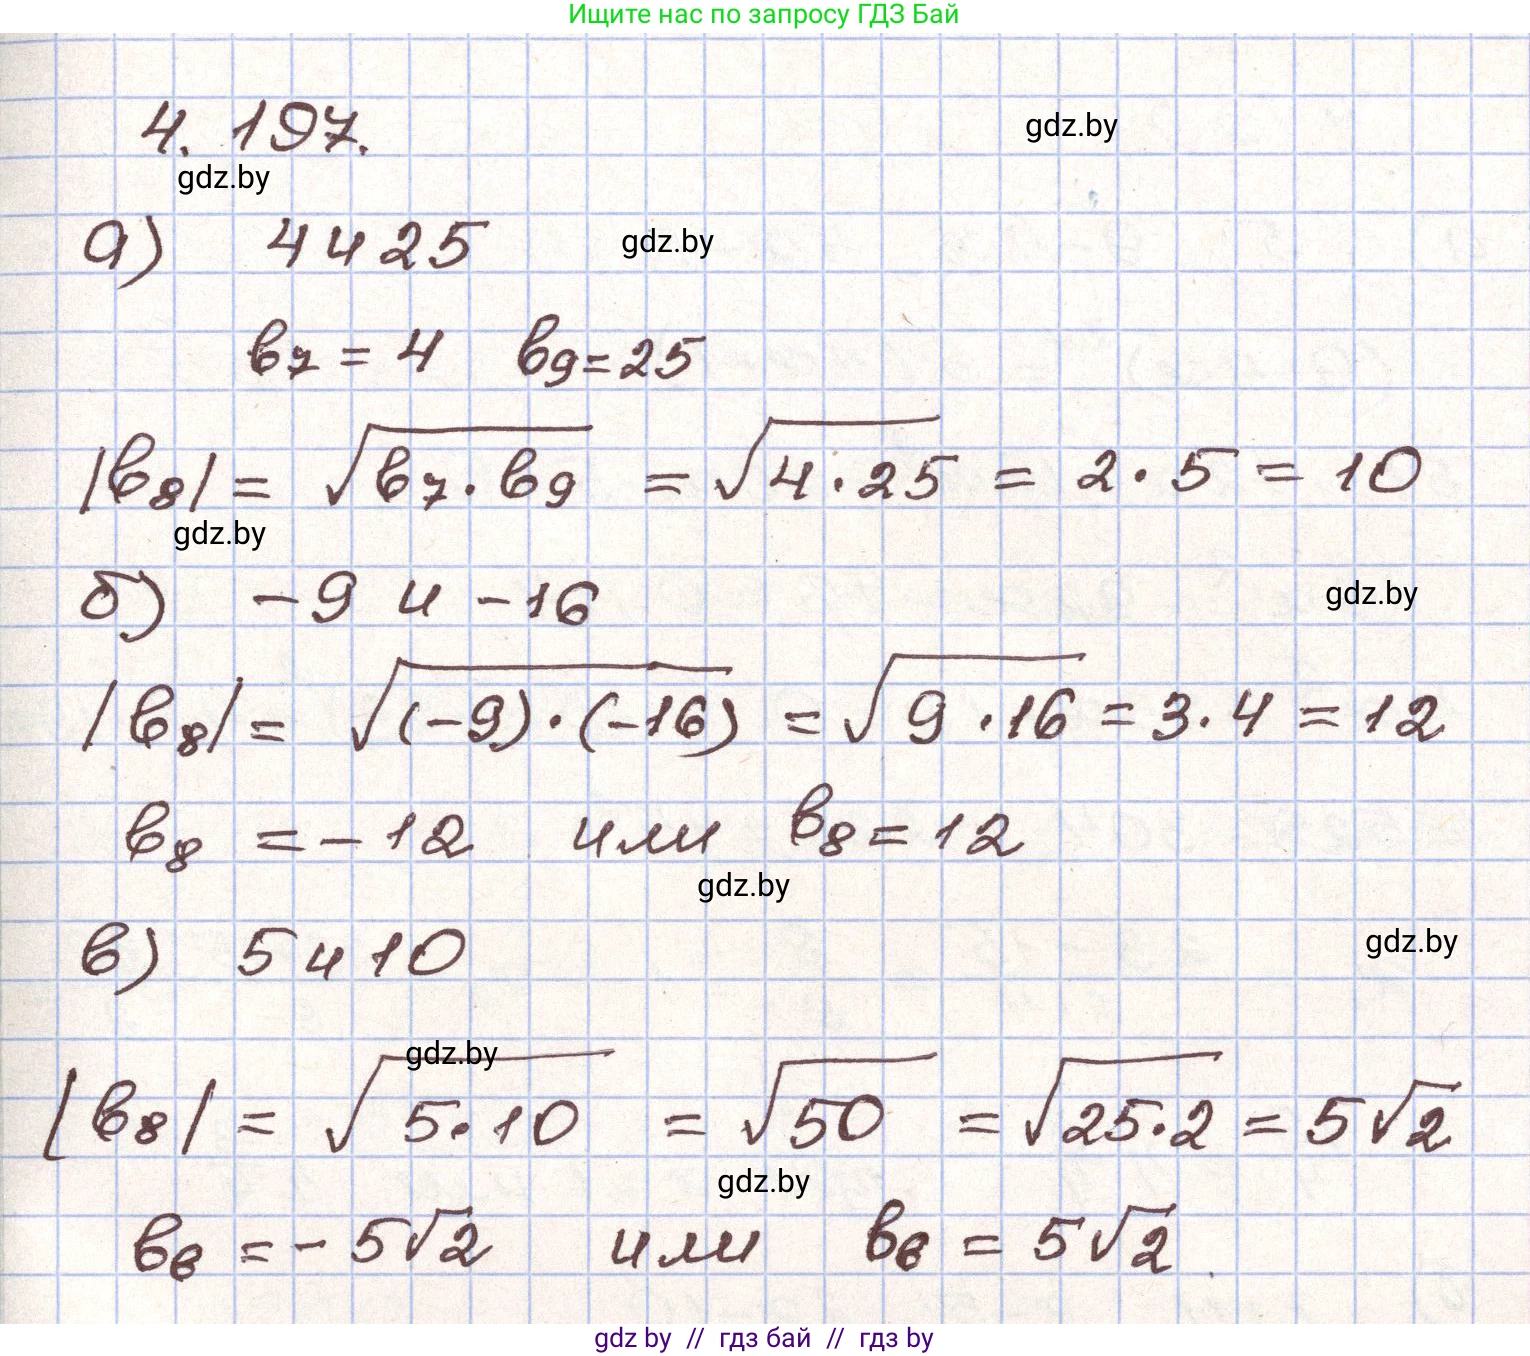 Ищите нас по запросу ГДЗ Бай
4. 197.
gdz.by
gdz.by
а) 4 и 25
gdz.by
b₇ = 4 b₉ = 25
|b₈| = √(b₇ · b₉) = √(4 · 25) = 2 · 5 = 10
gdz.by
б) -9 и -16
gdz.by
|b₈| = √((-9) · (-16)) = √(9 · 16) = 3 · 4 = 12
b₈ = -12 или b₈ = 12
gdz.by
в) 5 и 10
gdz.by
gdz.by
|b₈| = √(5 · 10) = √50 = √(25 · 2) = 5√2
gdz.by
b₆ = -5√2 или b₆ = 5√2
gdz by // гдз бай // гдз by